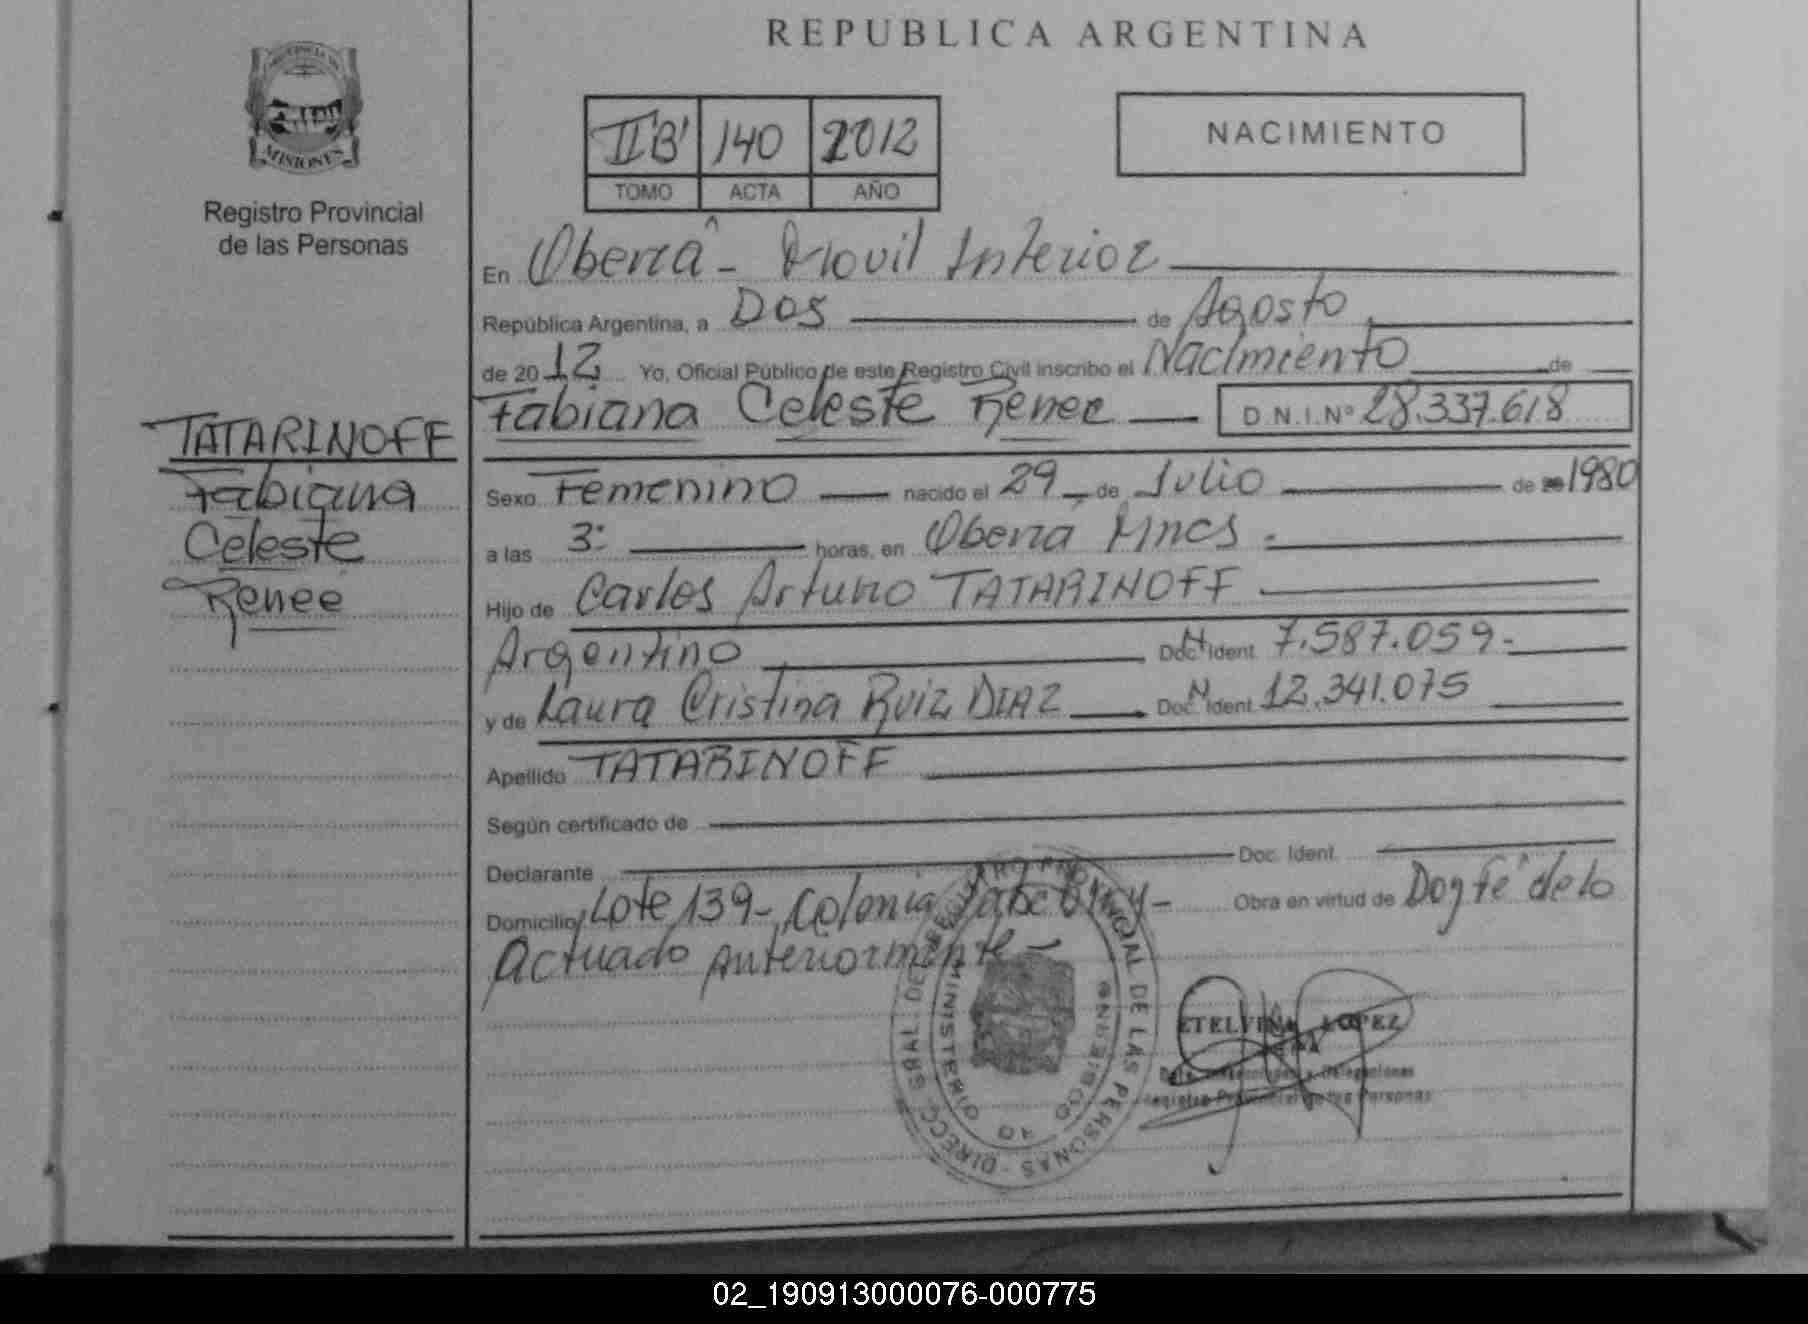 REPUBLICA ARGENTINA
MISIONES
Registro Provincial
de las Personas
II'B' 140 2012
TOMO ACTA AÑO
NACIMIENTO
En Oberá - Movil Interior
República Argentina, a Dos de Agosto
de 2012 Yo, Oficial Público de este Registro Civil inscribo el Nacimiento de
Fabiana Celeste Renee D.N.I.Nº 28.337.618
TATARINOFF
Fabiana
Celeste
Renee
Sexo Femenino nacido el 29 de Julio de 1980
a las 3: horas, en Oberá Mnes.
Hijo de Carlos Arturo TATARINOFF
Argentino Doc. Ident. 7.587.059-
y de Laura Cristina Ruiz DIAZ Doc. Ident. 12.341.075
Apellido TATARINOFF
Según certificado de
Declarante Doc. Ident.
Domicilio Lote 139-, Colonia Obra en virtud de Doy fé de lo
Actuado Anteriormente-
DIRECC. GRAL. DEL REGISTRO PROVINCIAL DE LAS PERSONAS
MINISTERIO DE GOBIERNO
ETELVINA LOPEZ
Registro Provincial de las Personas
02_190913000076-000775